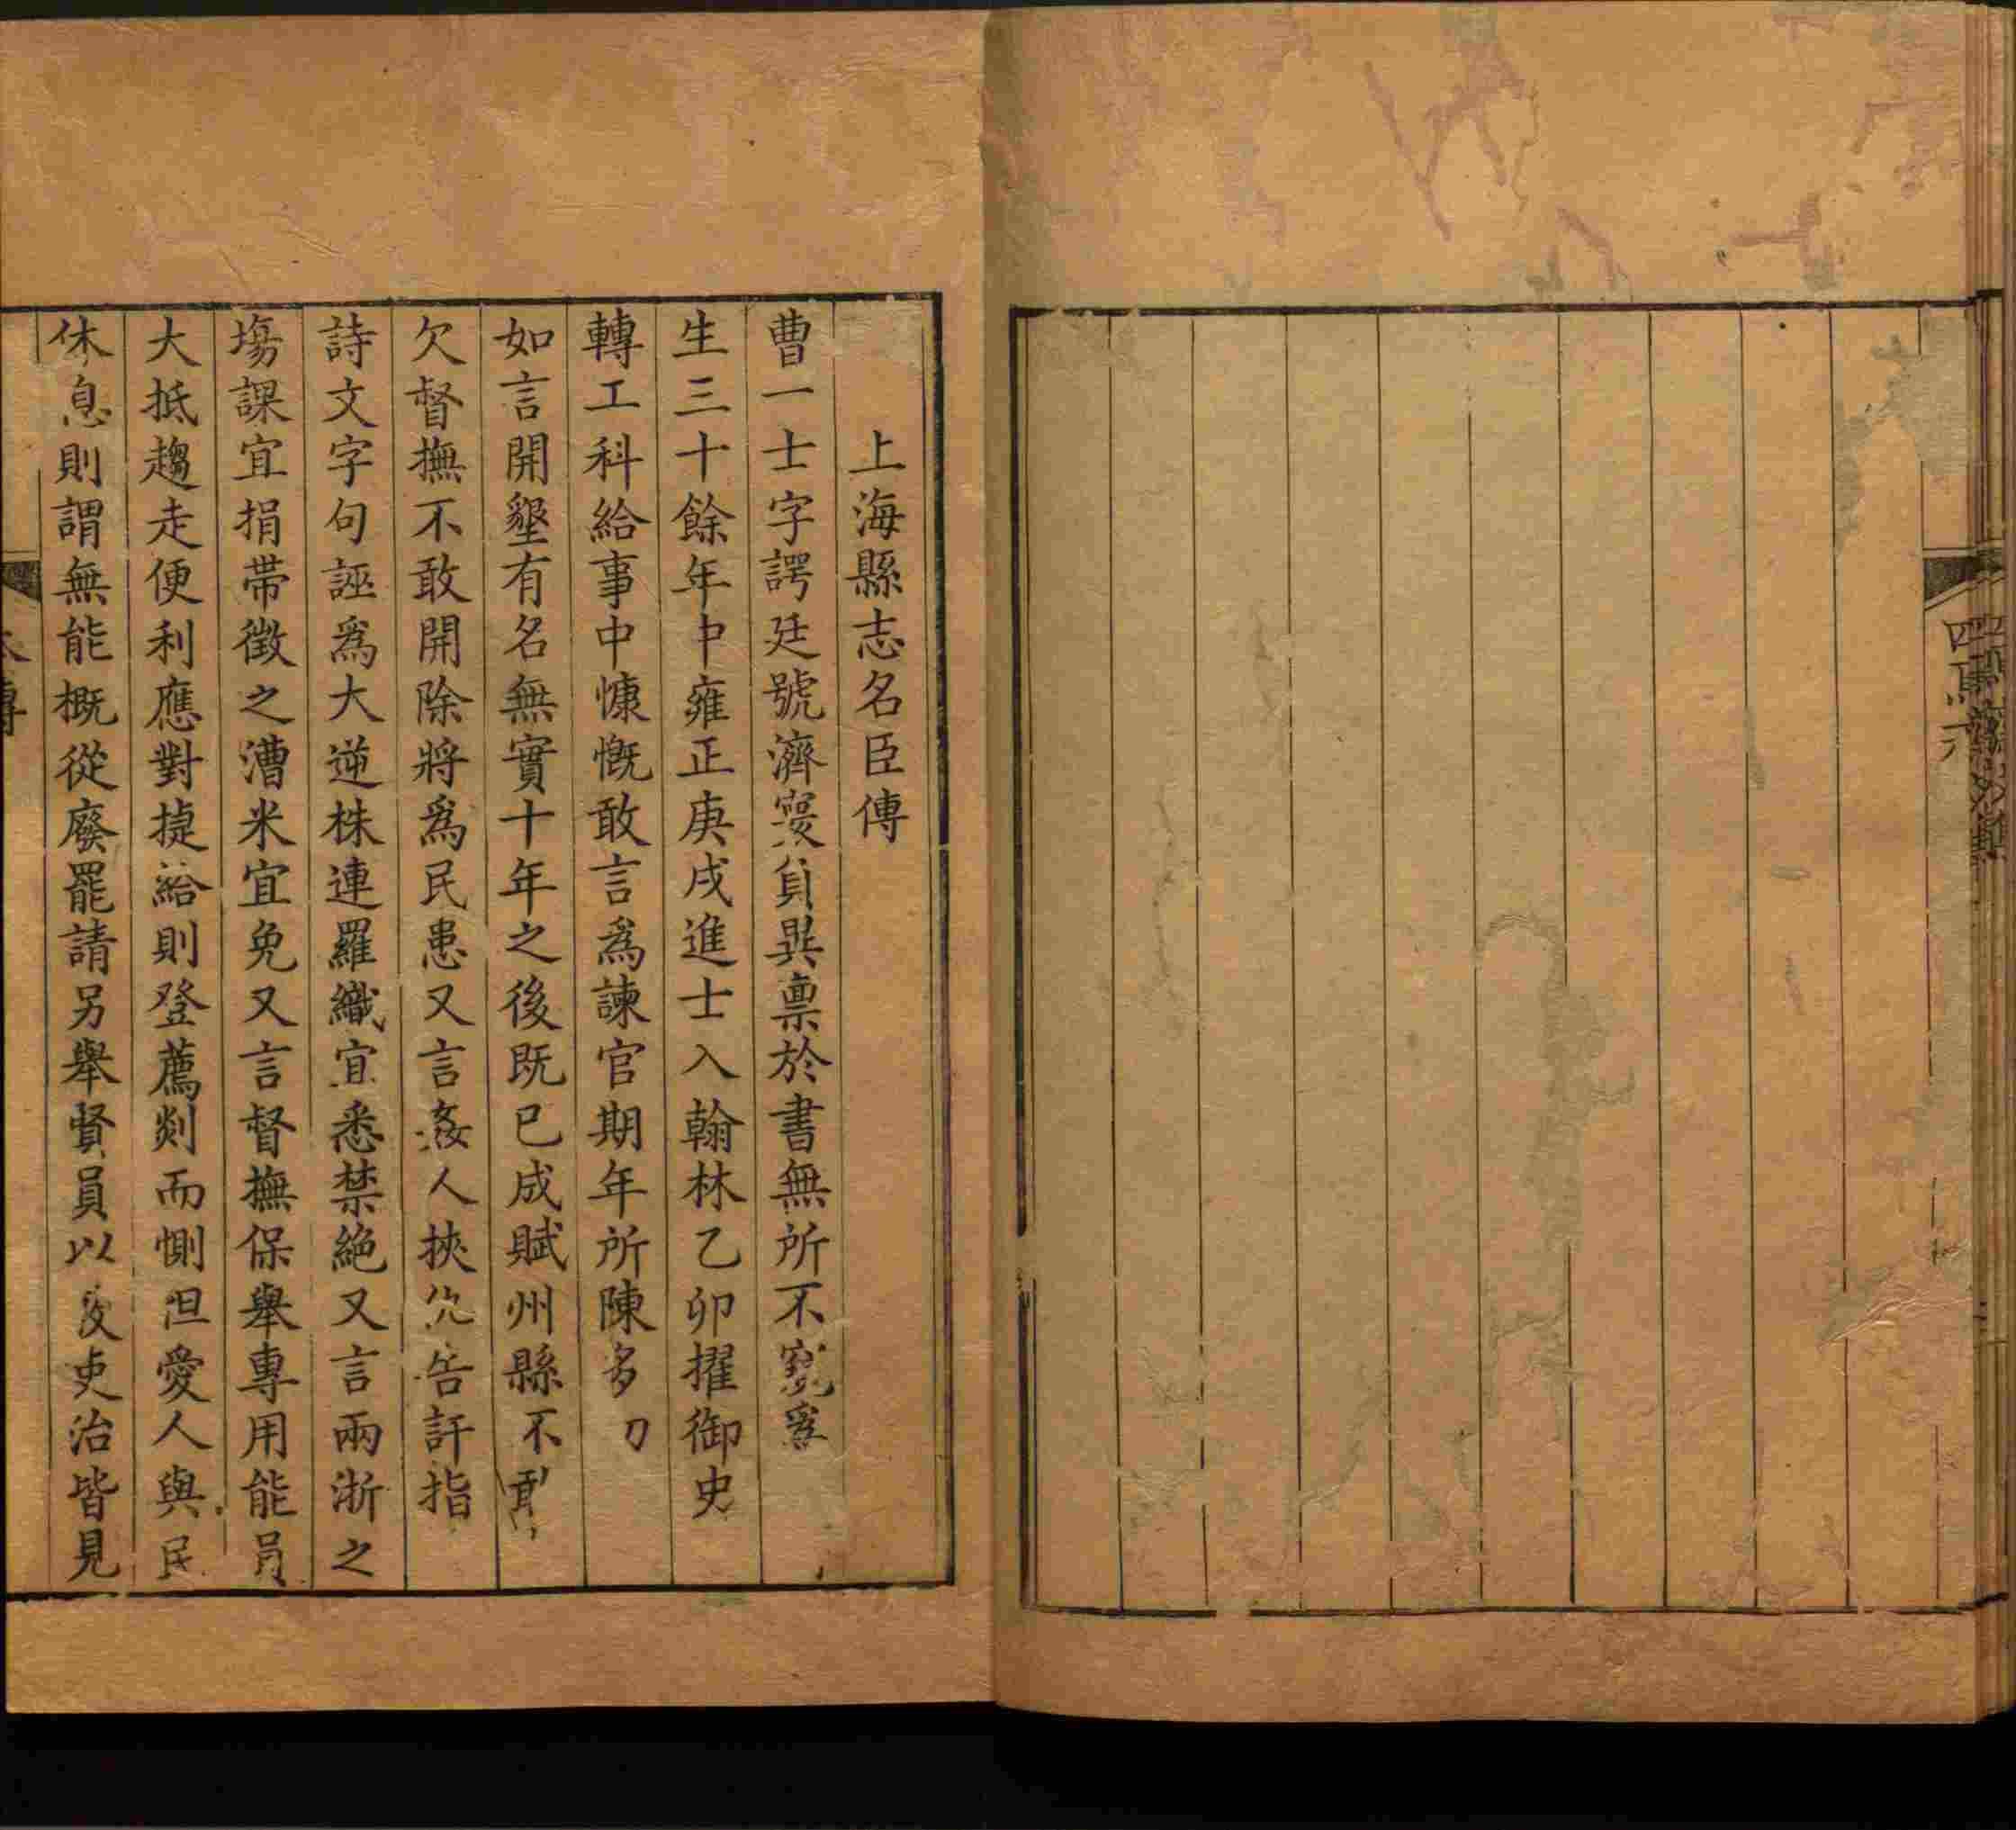 上海縣志名臣傳
曹一士字諤廷號濟寰負異禀於書無所不窺爲
生三十餘年中雍正庚戌進士入翰林乙卯擢御史
轉工科給事中慷慨敢言爲諫官期年所陳多切
如言開墾有名無實十年之後既已成賦州縣不敢
欠督撫不敢開除將爲民患又言姦人挾仇告訐指
詩文字句誣爲大逆株連羅織宜悉禁絶又言兩浙之
塲課宜捐帶徵之漕米宜免又言督撫保舉專用能員
大抵趨走便利應對捷給則登薦剡而惻怛愛人與民
休息則謂無能概從廢罷請另舉賢員以後吏治皆見
本傳